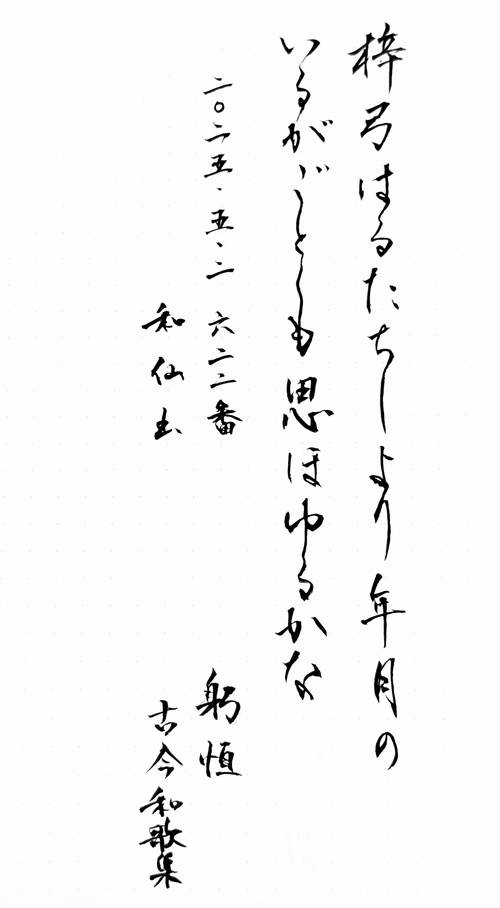 梓弓はるたちしより年月の
いるがごとくも思ほゆるかな
二〇二五・五・二 六二二番
躬恒
和仙
古今和歌集